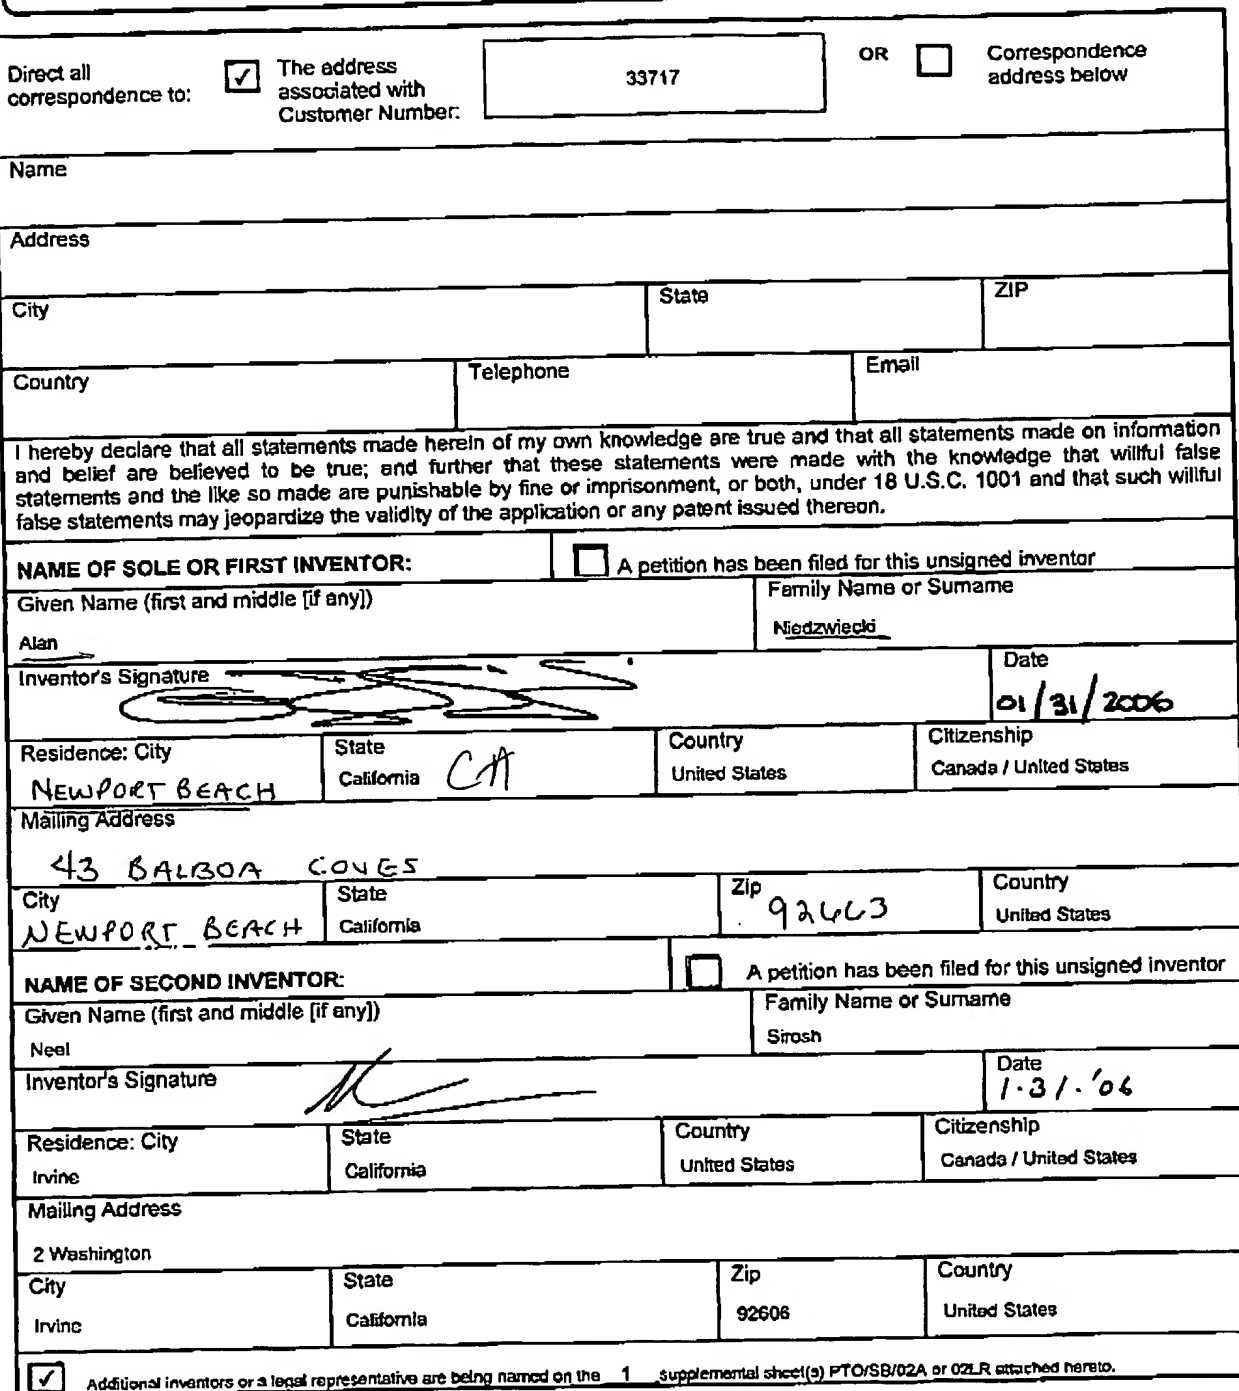 Direct all correspondence to:
✓ The address associated with Customer Number:
33717
OR
Correspondence address below
Name
Address
City
State
ZIP
Country
Telephone
Email
I hereby declare that all statements made herein of my own knowledge are true and that all statements made on information
and belief are believed to be true; and further that these statements were made with the knowledge that willful false
statements and the like so made are punishable by fine or imprisonment, or both, under 18 U.S.C. 1001 and that such willful
false statements may jeopardize the validity of the application or any patent issued thereon.
NAME OF SOLE OR FIRST INVENTOR:
A petition has been filed for this unsigned inventor
Given Name (first and middle [if any])
Family Name or Surname
Alan
Niedzwiecki
Inventor's Signature
Date
01/31/2006
Residence: City
State
Country
Citizenship
NEWPORT BEACH
California CA
United States
Canada / United States
Mailing Address
43 BALBOA COVES
City
State
Zip
Country
NEWPORT BEACH
California
92663
United States
NAME OF SECOND INVENTOR:
A petition has been filed for this unsigned inventor
Given Name (first and middle [if any])
Family Name or Surname
Neel
Sirosh
Inventor's Signature
Date
1·31·'06
Residence: City
State
Country
Citizenship
Irvine
California
United States
Canada / United States
Mailing Address
2 Washington
City
State
Zip
Country
Irvine
California
92606
United States
✓ Additional inventors or a legal representative are being named on the 1 supplemental sheet(s) PTO/SB/02A or 02LR attached hereto.